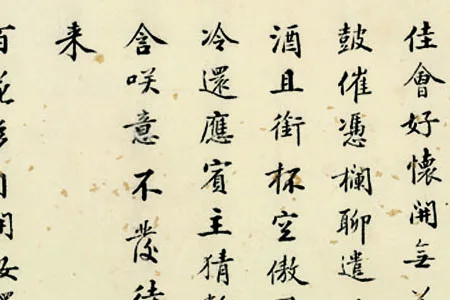 佳會好懷開無
鼓催憑欄聊遣
酒且銜杯空傲
冷還應賓主猜
含咲意不發待
来
百花開